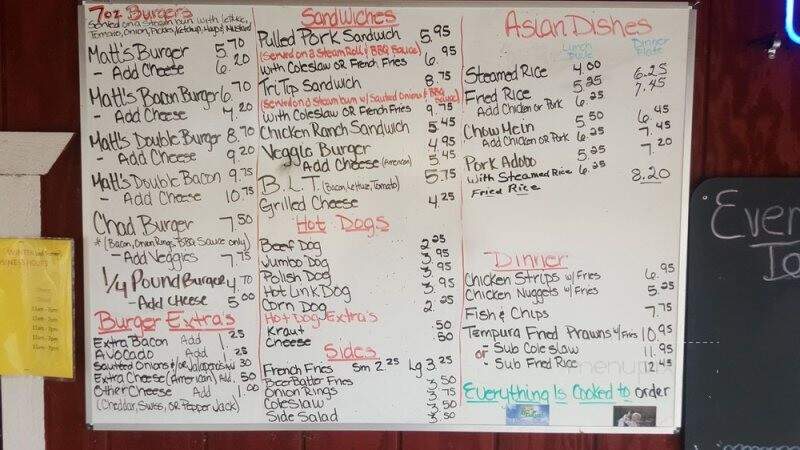 7oz Burgers
Served on a steam bun with lettuce,
Tomato, Onion, Pickles, Ketchup, Mayo & Mustard
Matt's Burger 5.70
- Add Cheese 6.20
Matt's Bacon Burger 6.70
- Add Cheese 7.20
Matt's Double Burger 8.70
- Add Cheese 9.20
Matt's Double Bacon 9.75
- Add Cheese 10.75
Chad Burger 7.50
*(Bacon, Onion Rings, BBQ Sauce only)
- Add Veggies 7.75
1/4 Pound Burger 4.70
- Add Cheese 5.00
Burger Extra's
Extra Bacon Add 1.25
Avocado Add 1.25
Sauteed Onions &/or Jalapenos .30
Extra Cheese (American) Add .50
Other Cheese Add 1.00
(Cheddar, Swiss, OR Pepper Jack)
Sandwiches
Pulled Pork Sandwich 5.95
(Served on a Steam Roll & BBQ Sauce)
with Coleslaw OR French Fries 6.95
Tri Tip Sandwich 8.75
(Served on a Steam bun w/ Sauteed Onions & BBQ Sauce)
with Coleslaw OR French Fries 9.75
Chicken Ranch Sandwich 5.45
Veggie Burger 4.95
Add Cheese (American) 5.45
B.L.T. (Bacon, Lettuce, Tomato) 5.75
Grilled Cheese 4.25
Hot Dogs
Beef Dog 2.25
Jumbo Dog 3.95
Polish Dog 3.95
Hot Link Dog 3.95
Corn Dog 2.25
Hot Dog Extra's
Kraut .50
Cheese .50
Sides
French Fries Sm 2.25 Lg 3.25
Beer Batter Fries 3.50
Onion Rings 3.75
Coleslaw 3.50
Side Salad 3.50
Asian Dishes
Lunch Plate Dinner Plate
Steamed Rice 4.00 6.25
Fried Rice 5.25 7.45
Add Chicken or Pork 6.25
Chow Mein 5.50 6.45
Add Chicken or Pork 6.25 7.45
Pork Adobo 5.25 7.20
with Steamed Rice 6.25
Fried Rice 8.20
Dinner
Chicken Strips w/ Fries 6.95
Chicken Nuggets w/ Fries 5.25
Fish & Chips 7.75
Tempura Fried Prawns w/ Fries 10.95
or - Sub Coleslaw 11.95
- Sub Fried Rice 12.45
Everything Is Cooked to order